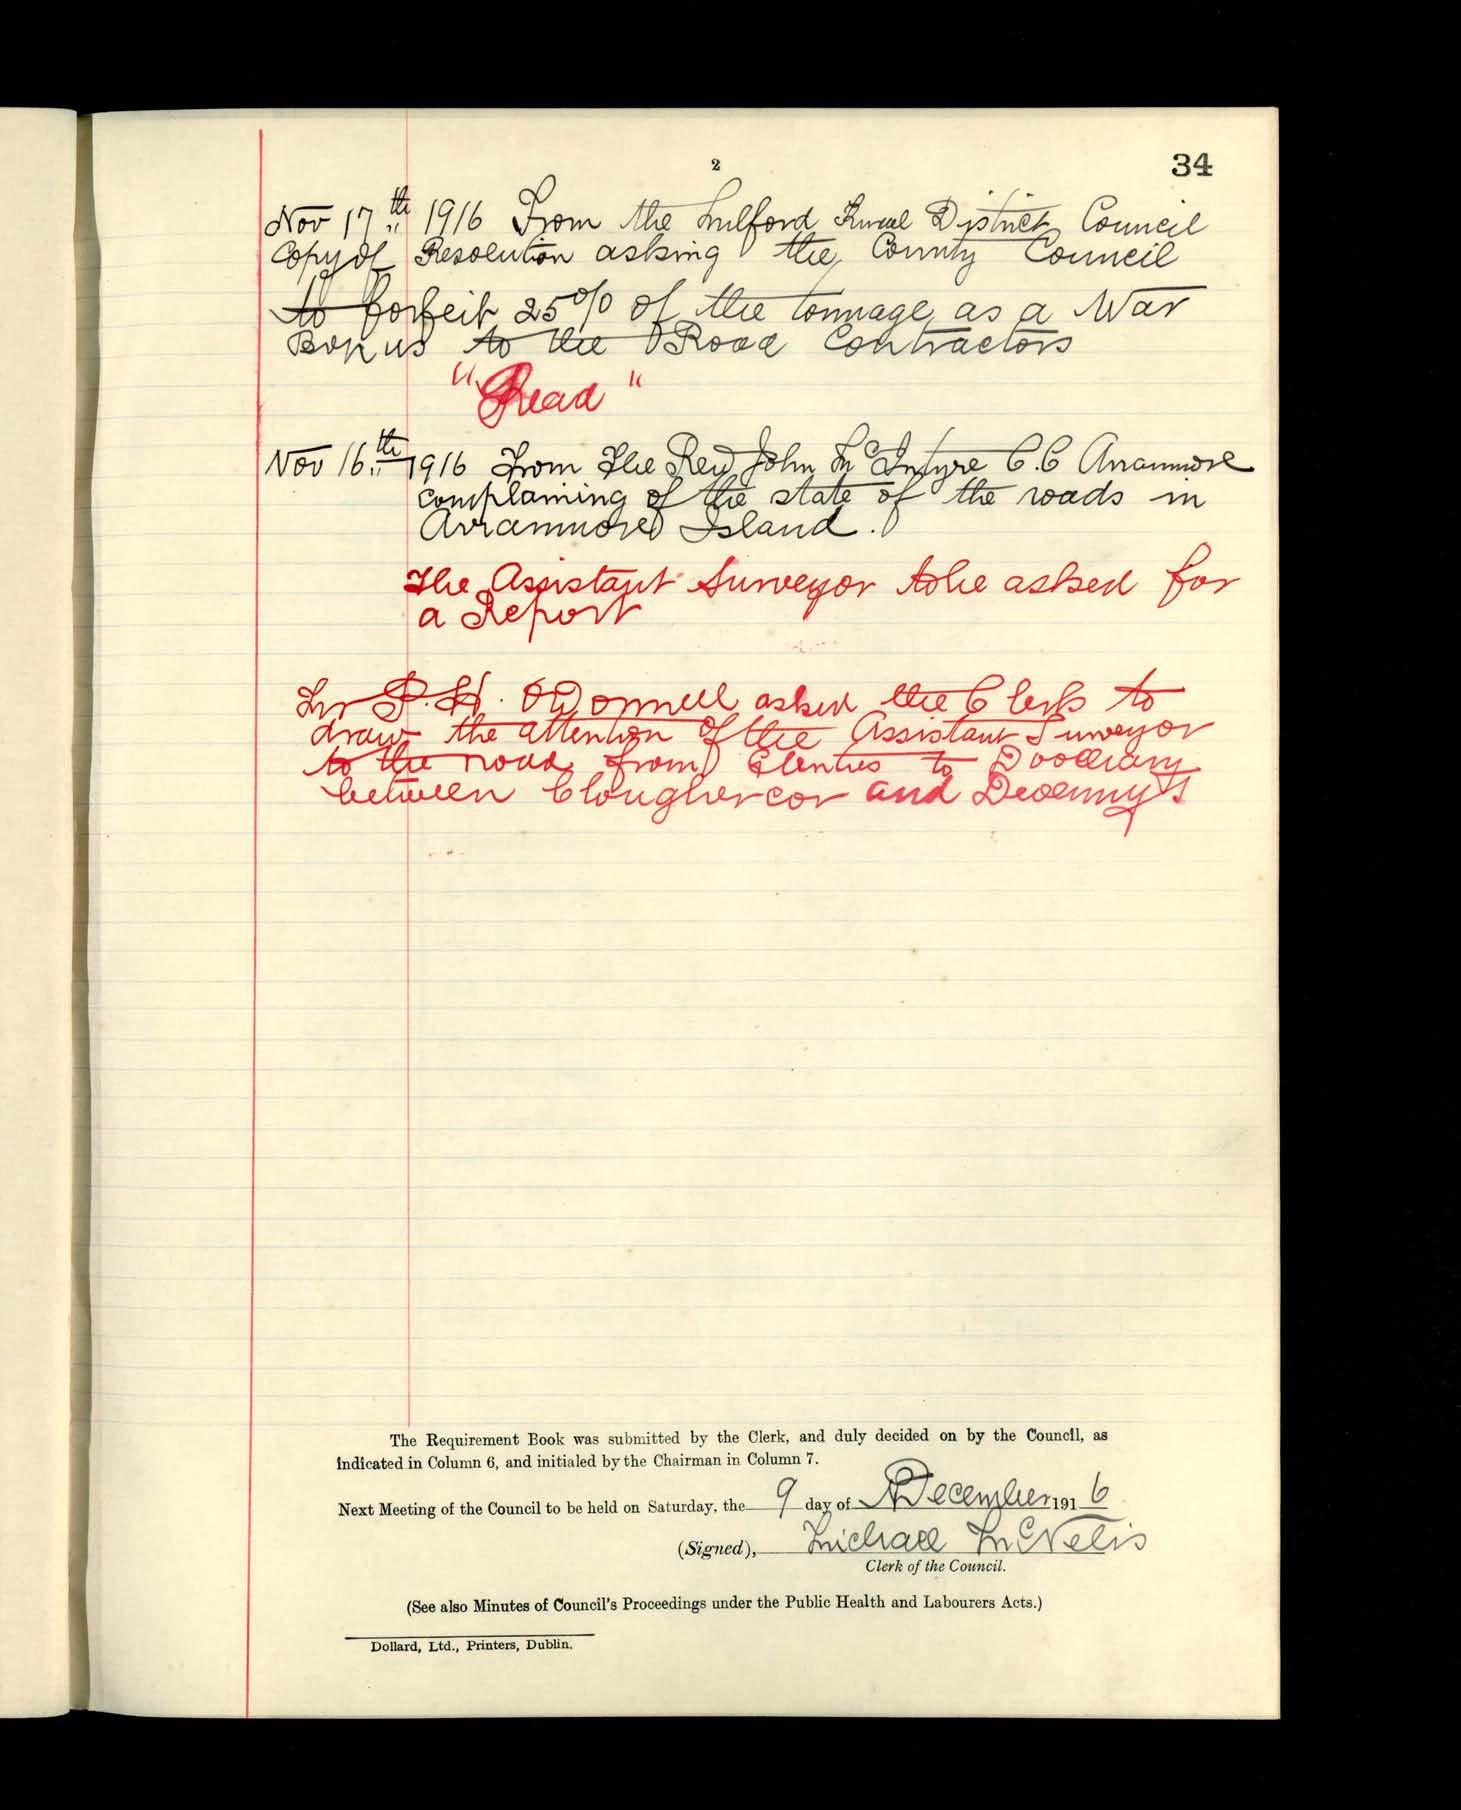 2
34
Nov 17th 1916 From the Milford Rural District Council
Copy of Resolution asking the County Council
to forfeit 25% of the tonnage as a War
Bonus to the Road Contractors
"Read"
Nov 16th 1916 From The Rev John McIntyre C.C Arranmore
complaining of the state of the roads in
Arranmore Island.
The Assistant Surveyor to be asked for
a Report
Mr P.H. O'Donnell asked the Clerk to
draw the attention of the Assistant Surveyor
to the road from Glenties to Doochary
between Cloughercor and
The Requirement Book was submitted by the Clerk, and duly decided on by the Council, as
indicated in Column 6, and initialed by the Chairman in Column 7.
Next Meeting of the Council to be held on Saturday, the 9 day of December 1916
(Signed), Michael McNelis
Clerk of the Council.
(See also Minutes of Council's Proceedings under the Public Health and Labourers Acts.)
Dollard, Ltd., Printers, Dublin.